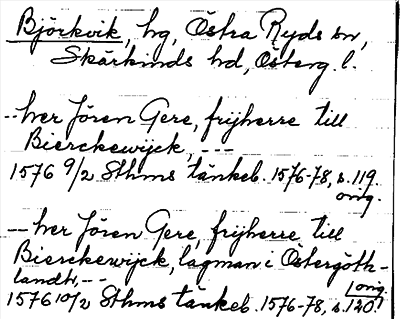 Björkvik, hg, Östra Ryds sn,
Skärkinds hd, Österg. l.
--her Jören Gere, frijherre till
Bierckewijck, ---
1576 9/2 Sthms tänkeb. 1576-78, s. 119.
orig.
--her Jören Gere, frijherre till
Bierckewijck, lagman i Östergöth-
landh, --
1576 10/2 Sthms tänkeb. 1576-78, s. 120.
orig.